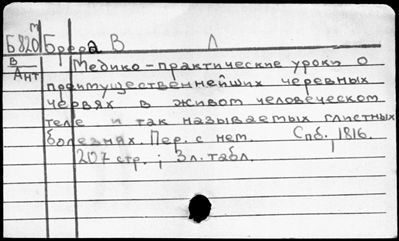 М
Б820 Брера В Л
В Медико-практические уроки о
Ант преимущественнейших червных
червях в живот человеческом
теле и так называемых глистных
болезнях. Пер. с нем. Спб. 1816.
207 стр.; 3л. табл.